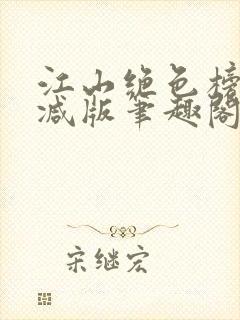 江山绝色榜
减版笔趣阁
宋继宏